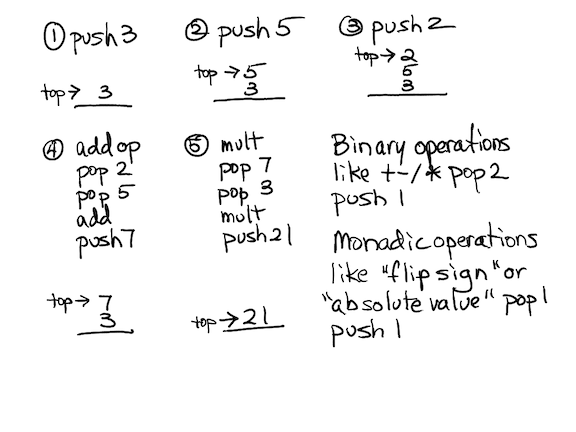 ① push 3
top → 3
② push 5
top → 5
3
③ push 2
top → 2
5
3
④ add op
pop 2
pop 5
add
push 7
top → 7
3
⑤ mult
pop 7
pop 3
mult
push 21
top → 21
Binary operations
like +-/* pop 2
push 1
Monadic operations
like "flip sign" or
"absolute value" pop 1
push 1